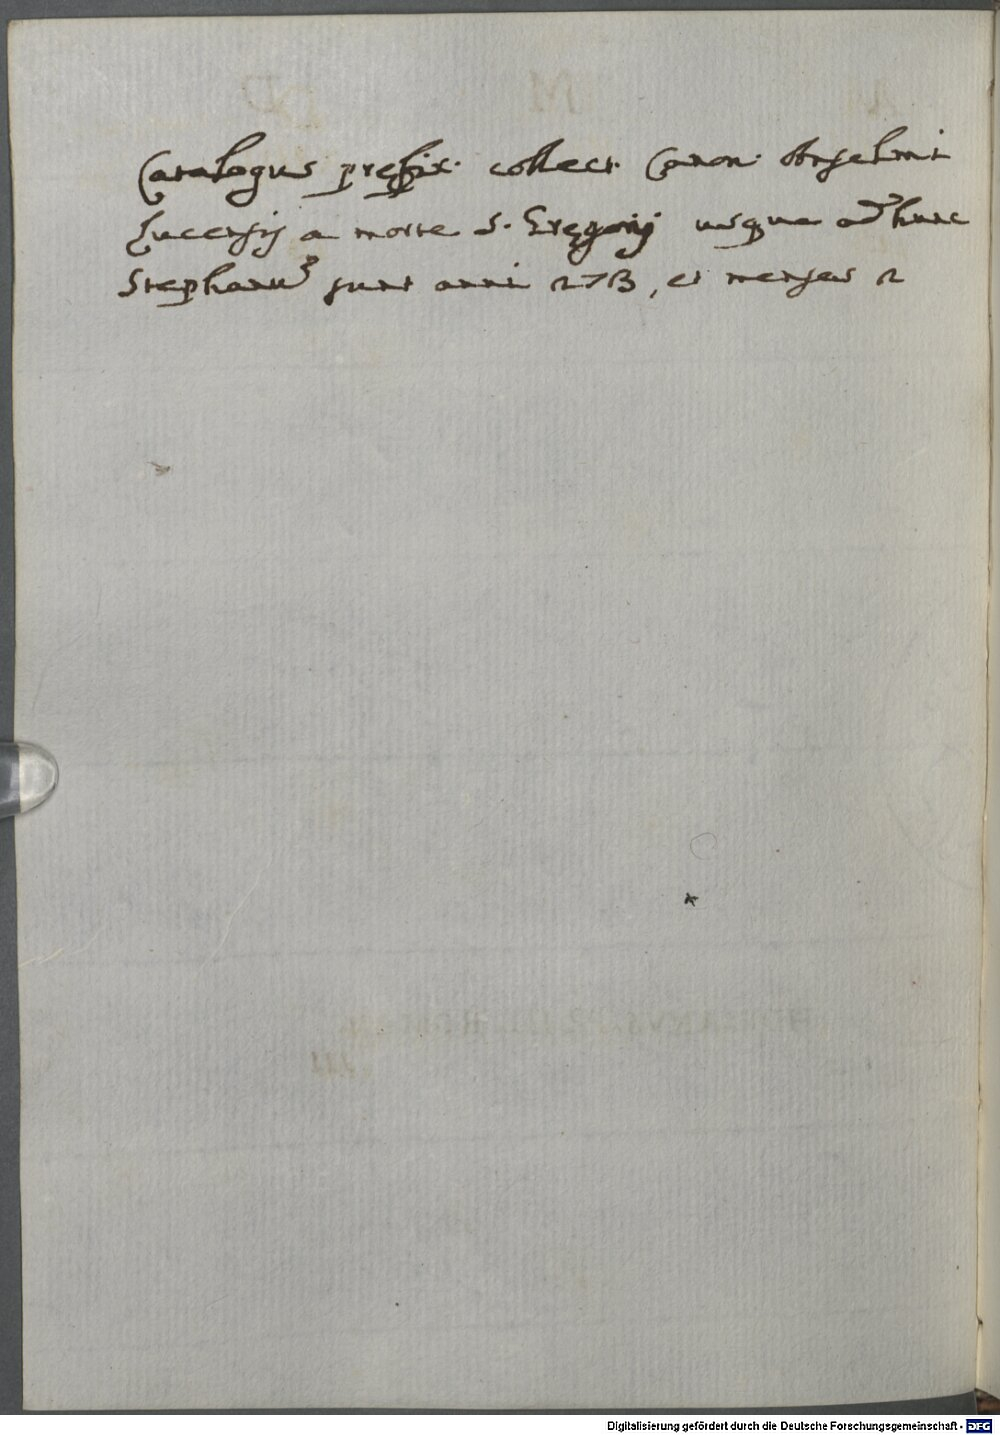 Catalogus prefix. collect. Canon. Anselmi
Lucensis a morte S. Gregorij usque ad hunc
Stephanũ sunt anni 273, et menses 2
Digitalisierung gefördert durch die Deutsche Forschungsgemeinschaft - DFG